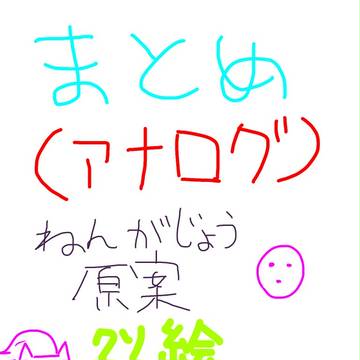 まとめ
(アナログ)
ねんがじょう
原案
クソ絵